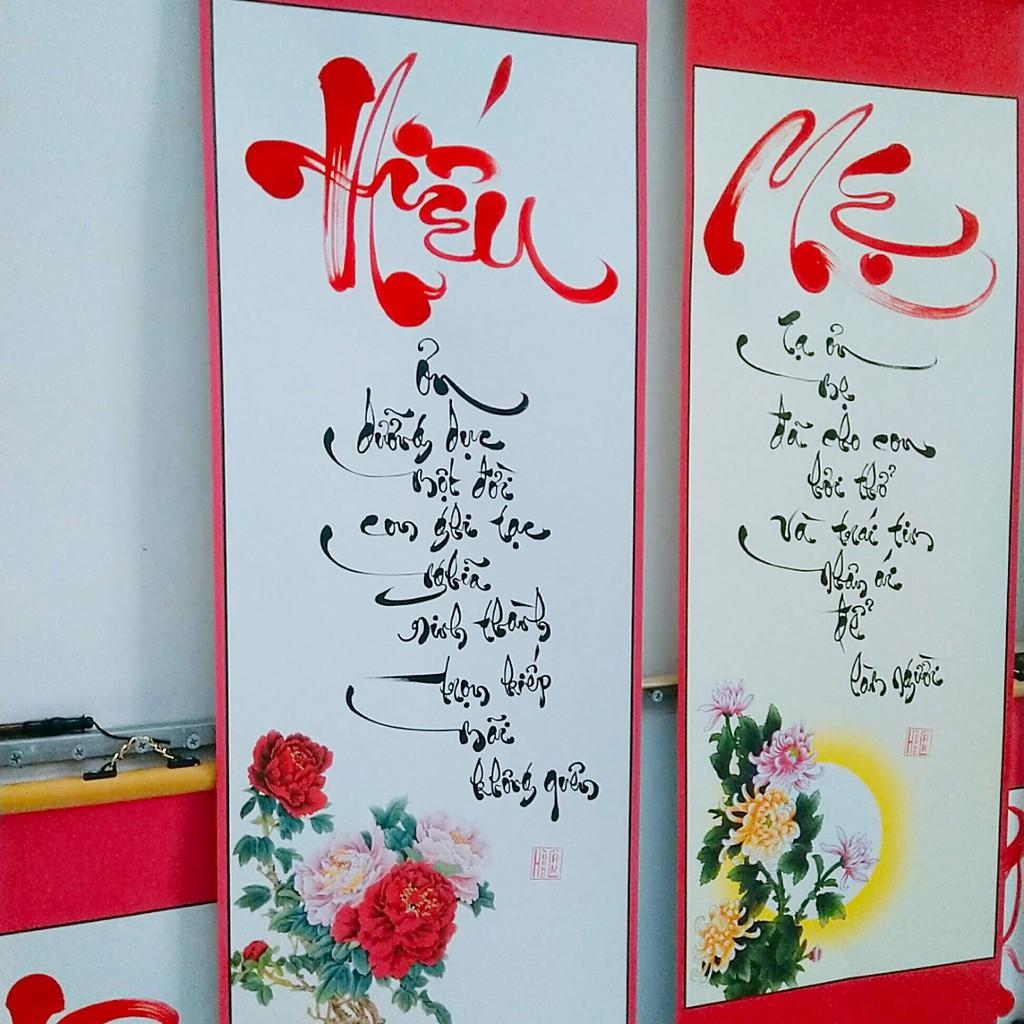 Hiếu
Ơn
dưỡng dục
một đời
con ghi tạc
nghĩa
sinh thành
trọn kiếp
mãi
không quên
Mẹ
Tạ ơn
mẹ
đã cho con
hơi thở
và trái tim
nhân ái
để
làm người